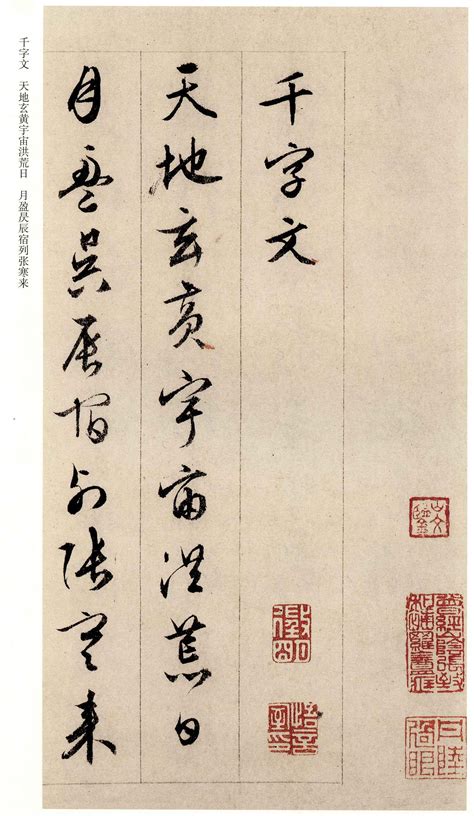 千字文
天地玄黄宇宙洪荒日
月盈昃辰宿列张寒来
千字文　天地玄黄宇宙洪荒日　月盈昃辰宿列张寒来